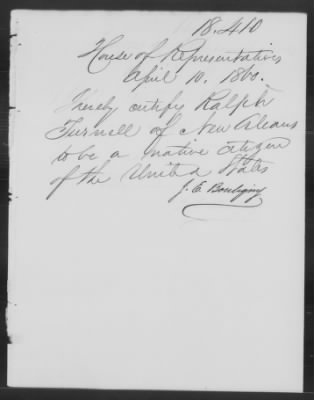 18.410
House of Representatives
April 10. 1860.
I hereby certify Ralph
Turnell of New Orleans
to be a native citizen
of the United States
J. E. Bouligny